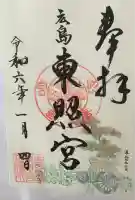 奉拝
広島東照宮
令和六年一月四日